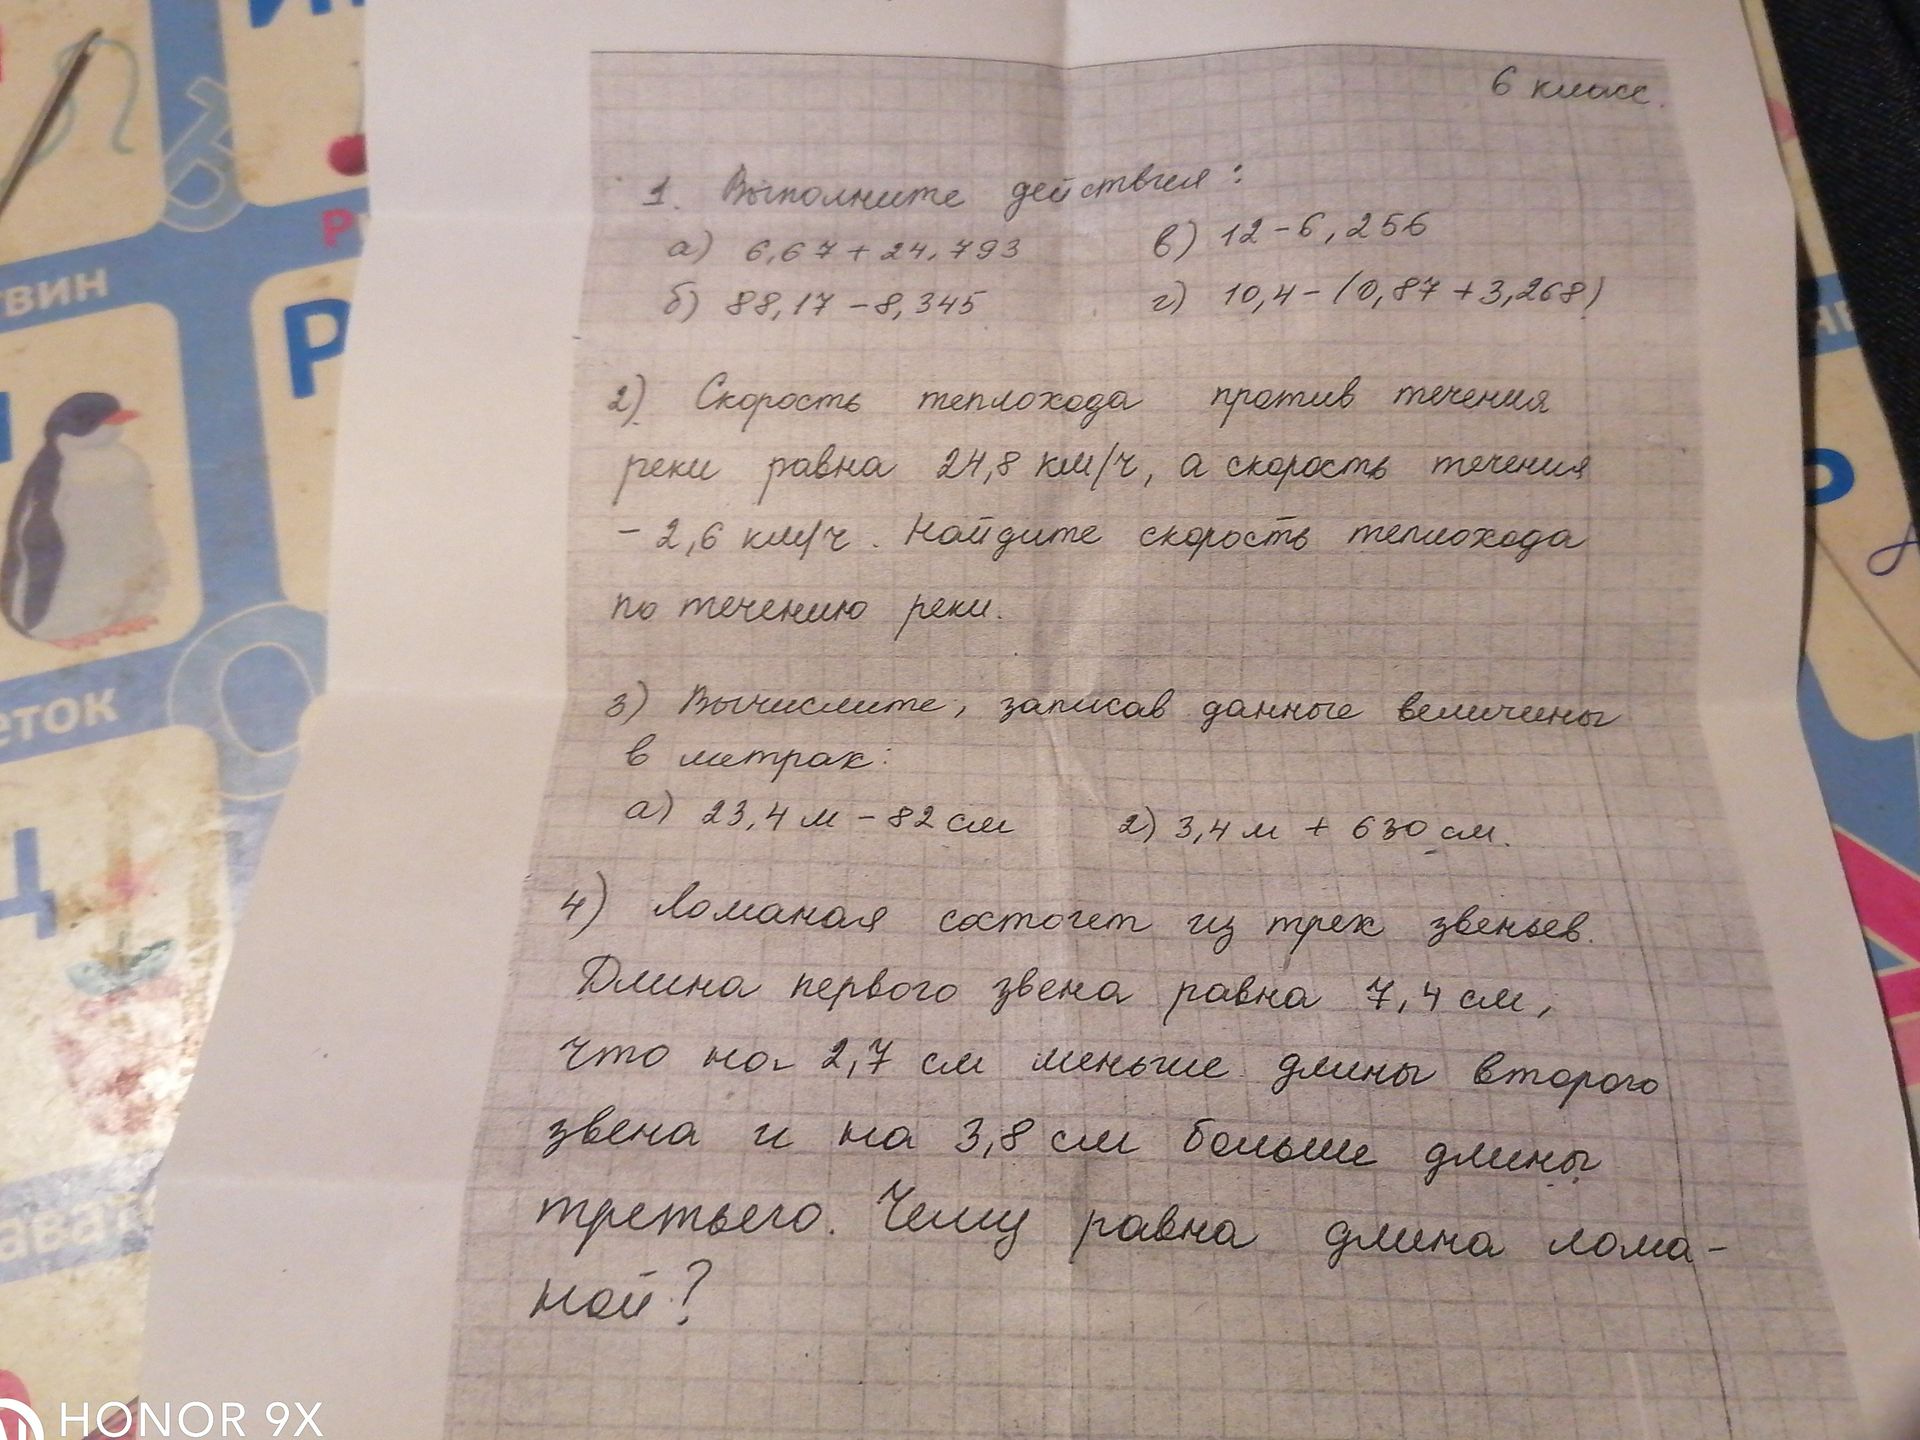 6 класс.
1. Выполните действия:
а) 6,67 + 24,793
в) 12 - 6,256
б) 88,17 - 8,345
г) 10,4 - (0,87 + 3,268)
2) Скорость теплохода против течения
реки равна 24,8 км/ч, а скорость течения
- 2,6 км/ч. Найдите скорость теплохода
по течению реки.
3) Вычислите, записав данные величины
в метрах:
а) 23,4 м - 82 см
2) 3,4 м + 630 см.
4) Ломаная состоит из трех звеньев.
Длина первого звена равна 7,4 см,
что на 2,7 см меньше длины второго
звена и на 3,8 см больше длины
третьего. Чему равна длина лома-
ной?
ТВИН
Р
ЕТОК
HONOR 9X